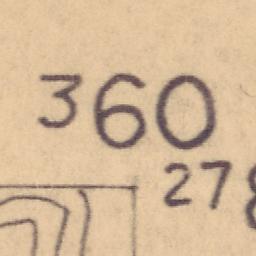 360
27